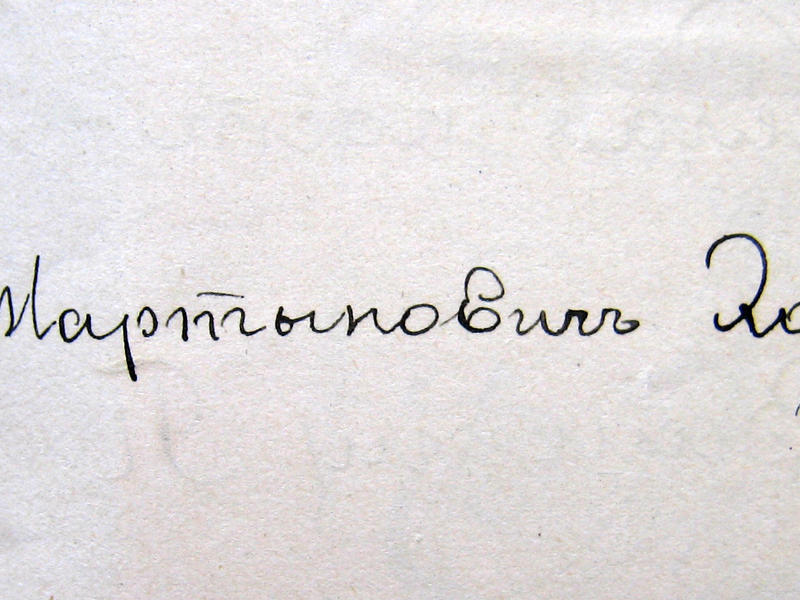 Мартыновичъ